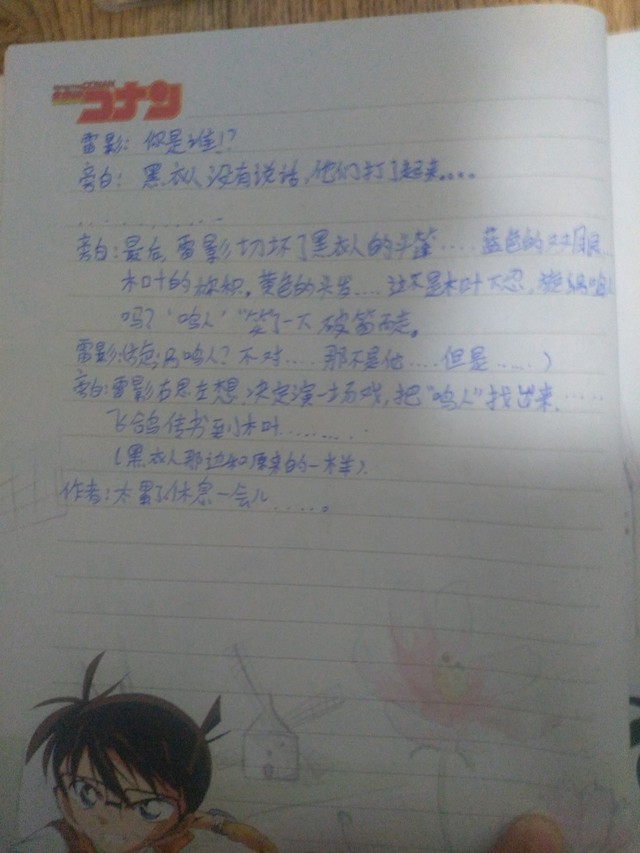 コナン
雷影：你是谁！？
旁白：黑衣人没有说话，他们打了起来....
..........
旁白：最后，雷影切坏了黑衣人的斗篷....蓝色的双眼
木叶的标积，黄色的头发....这不是木叶下忍，鸣人
吗？"鸣人"笑了一下破窗而走。
雷影：鸣人？不对....那不是他....但是....)
旁白：雷影右思左想，决定演一场戏，把"鸣人"找出来.....
飞鸽传书到木叶........
(黑衣人那边和原来的一样)
作者：太累了休息一会儿.....。